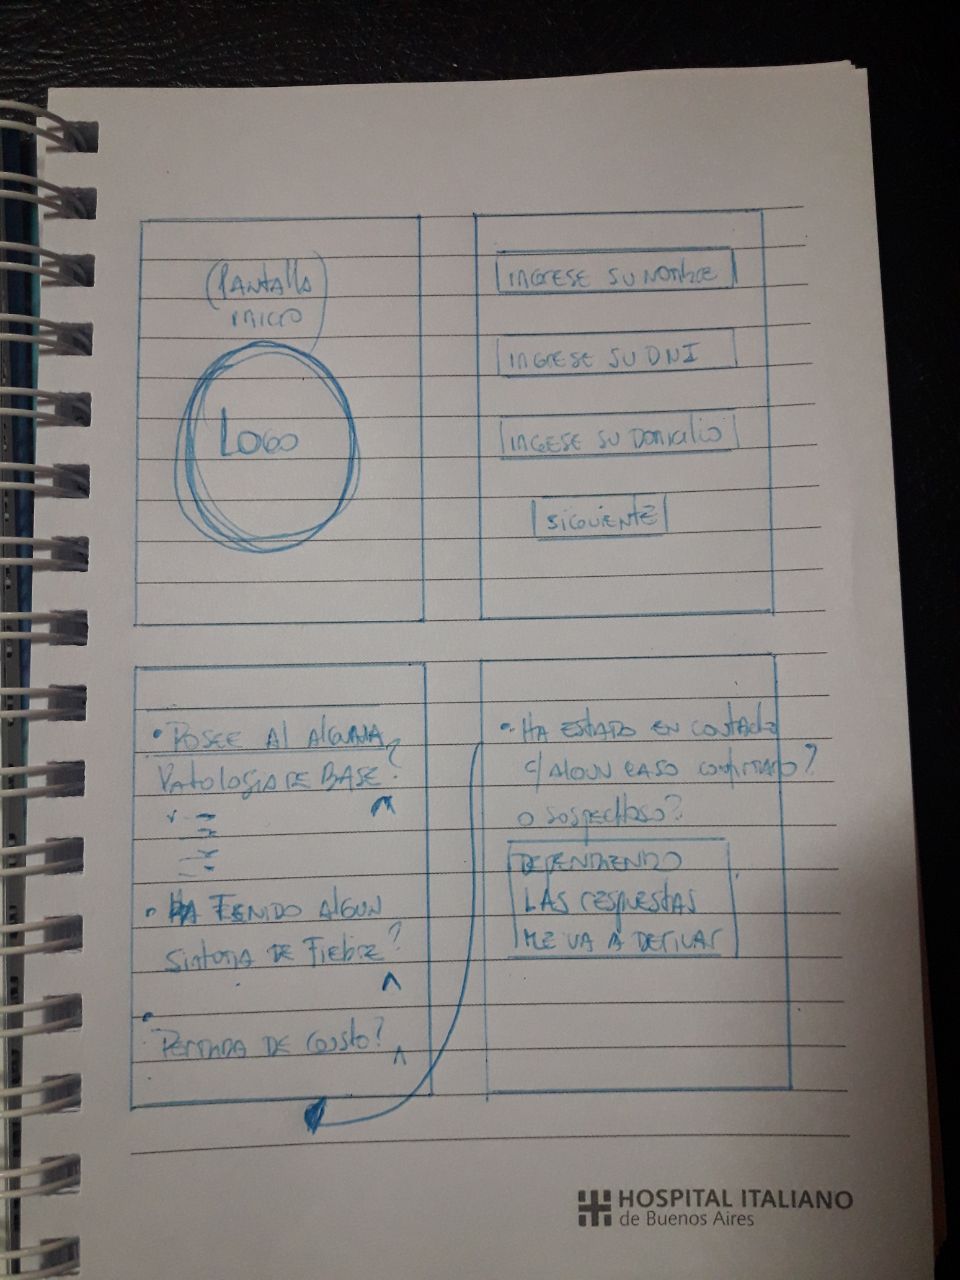 (Pantalla)
inicio
Logo
INGRESE SU NOMBRE
INGRESE SU DNI
INGESE SU DOMICILIO
SIGUIENTE
• POSEE Al AlGUNA
PATOLOGIA DE BASE?
• HA TENIDO ALGUN
SINTOMA DE FIEBRE?
• PERDIDA DE GUSTO?
• HA ESTADO EN CONTACTO
C/ ALGUN CASO CONFIRMADO?
O SOSPECHOSO?
DEPENDIENDO
LAS RESPUESTAS
ME VA A DERIVAR
HOSPITAL ITALIANO
de Buenos Aires